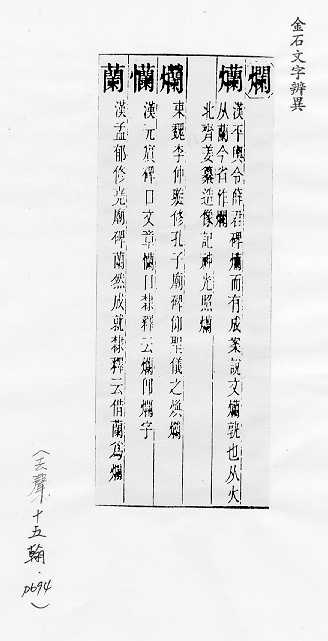 金石文字辨異
爛
爤
漢平輿令薛君碑爤而有成案說文爤孰也从火
从蘭今省作爛
北齊姜纂造像記神光照爤
爛
東魏李仲璇修孔子廟碑仰聖儀之煥爛
㦨
漢元賓碑曰文章㦨曰隸釋云爛卽爛字
蘭
漢孟郁修堯廟碑蘭然成就隸釋云借蘭爲爛
(去聲十五翰.p694)